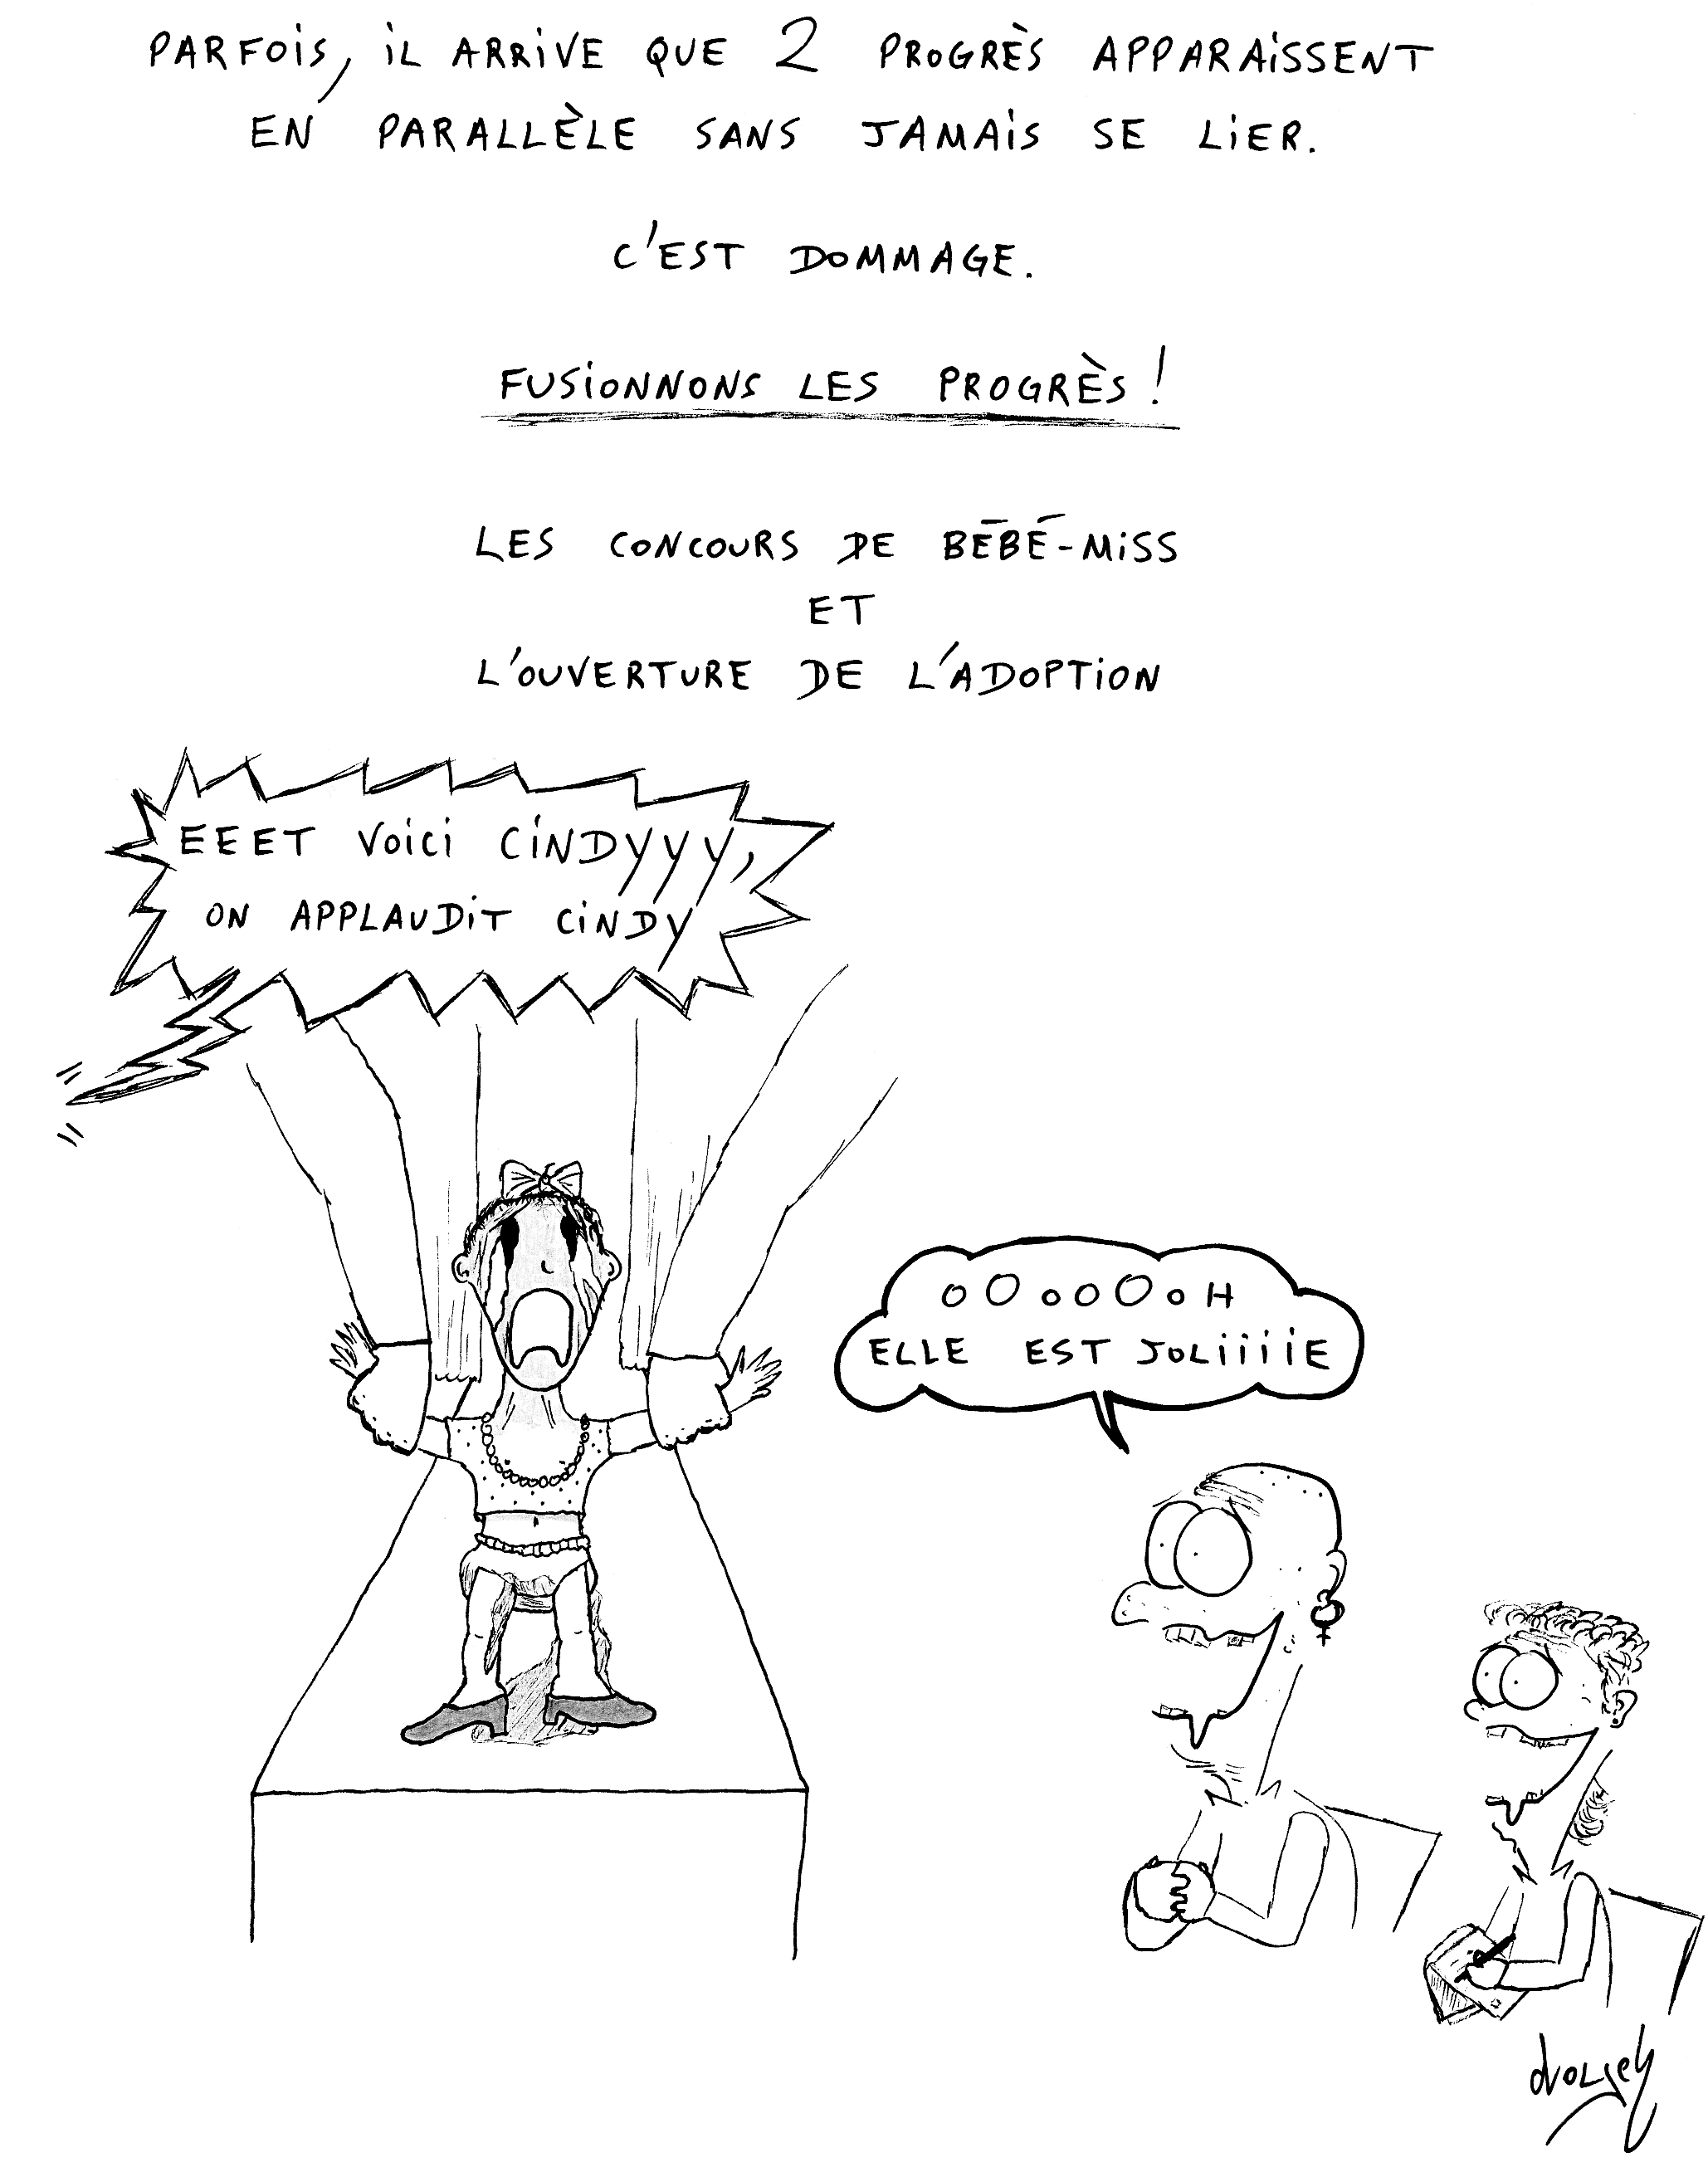 PARFOIS, IL ARRIVE QUE 2 PROGRÈS APPARAISSENT
EN PARALLÈLE SANS JAMAIS SE LIER.
C'EST DOMMAGE.
FUSIONNONS LES PROGRÈS !
LES CONCOURS DE BÉBÉ-MISS
ET
L'OUVERTURE DE L'ADOPTION
EEET VOICI CINDYYY,
ON APPLAUDIT CINDY
OOOOOOH
ELLE EST JOLIIIIIE